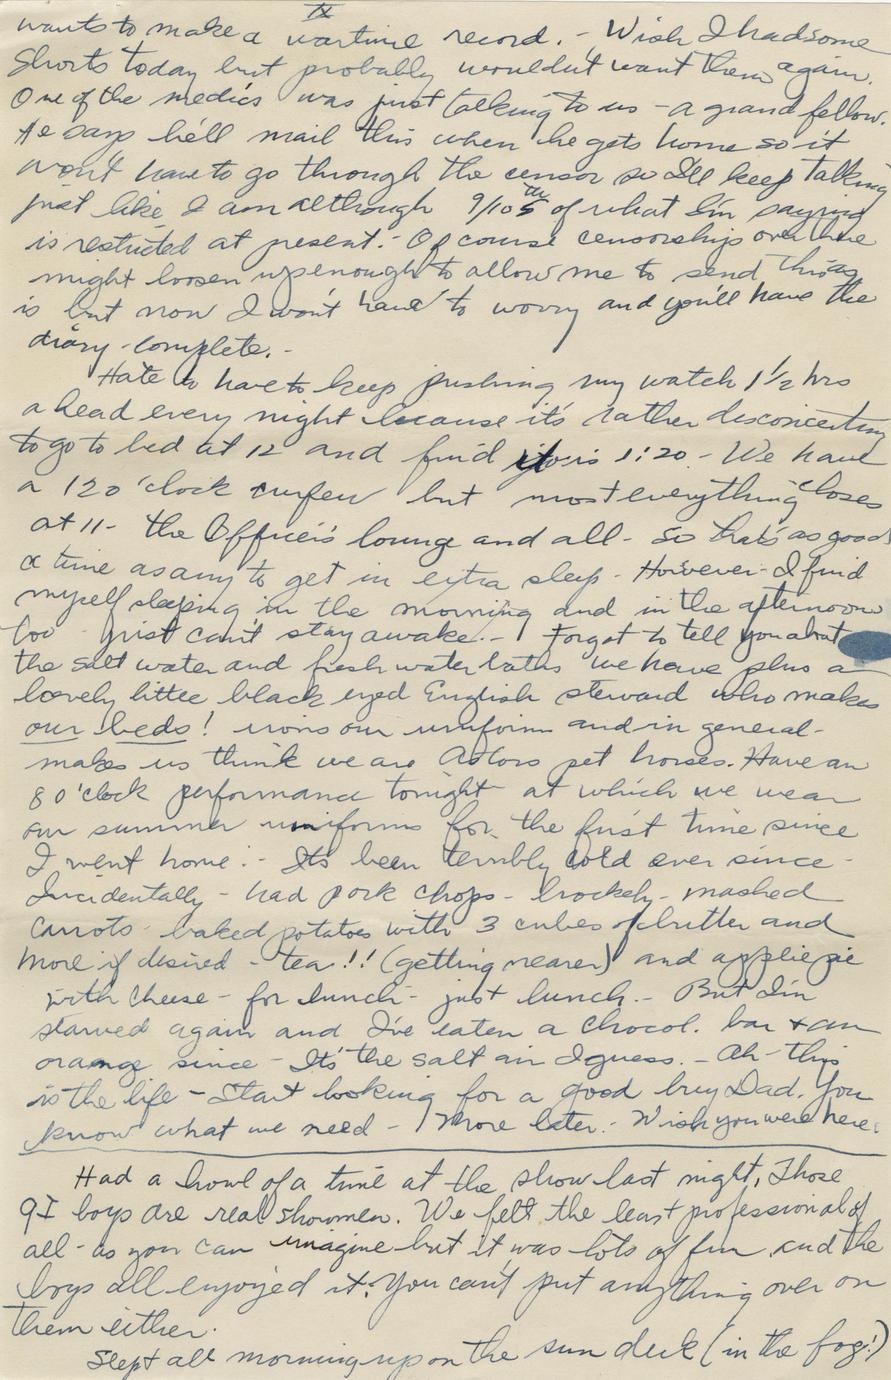 IX
wants to make a wartime record. - Wish I had some
Shorts today but probably wouldn't want them again.
One of the medics was just talking to us - a grand fellow.
He says he'll mail this when he gets home so it
won't have to go through the censor so I'll keep talking
just like I am although 9/10ths of what I'm saying
is restricted at present. - Of course censorship over there
might loosen up enough to allow me to send this as
is but now I won't have to worry and you'll have the
diary - complete. -
Hate to have to keep pushing my watch 1 1/2 hrs
ahead every night because it's rather disconcerting
to go to bed at 12 and find it is 1:20 - We have
a 12 o'clock curfew but most everything closes
at 11 - the Officer's lounge and all - so that's as good
a time as any to get in extra sleep - However - I find
myself sleeping in the morning and in the afternoon
too - just can't stay awake. - Forgot to tell you about
the salt water and fresh water baths we have plus a
lovely little black eyed English steward who makes
our beds! irons our uniforms and in general -
makes us think we are Astors pet horses. Have an
8 o'clock performance tonight at which we wear
our summer uniforms for the first time since
I went home. - It's been terribly cold ever since -
Incidentally - had pork chops - brockely - mashed
carrots - baked potatoes with 3 cubes of butter and
more if desired - tea!! (getting nearer) and apple pie
with cheese - for lunch - just lunch. - But I'm
starved again and I've eaten a chocol. bar + an
orange since - It's the salt air I guess. - Ah - this
is the life - Start looking for a good buy Dad. You
know what we need - More later. - Wish you were here.
Had a howl of a time at the show last night, Those
GI boys are real showmen. We felt the least professional of
all - as you can imagine but it was lots of fun and the
boys all enjoyed it. You can't put anything over on
them either.
Slept all morning up on the sun deck (in the fog!)